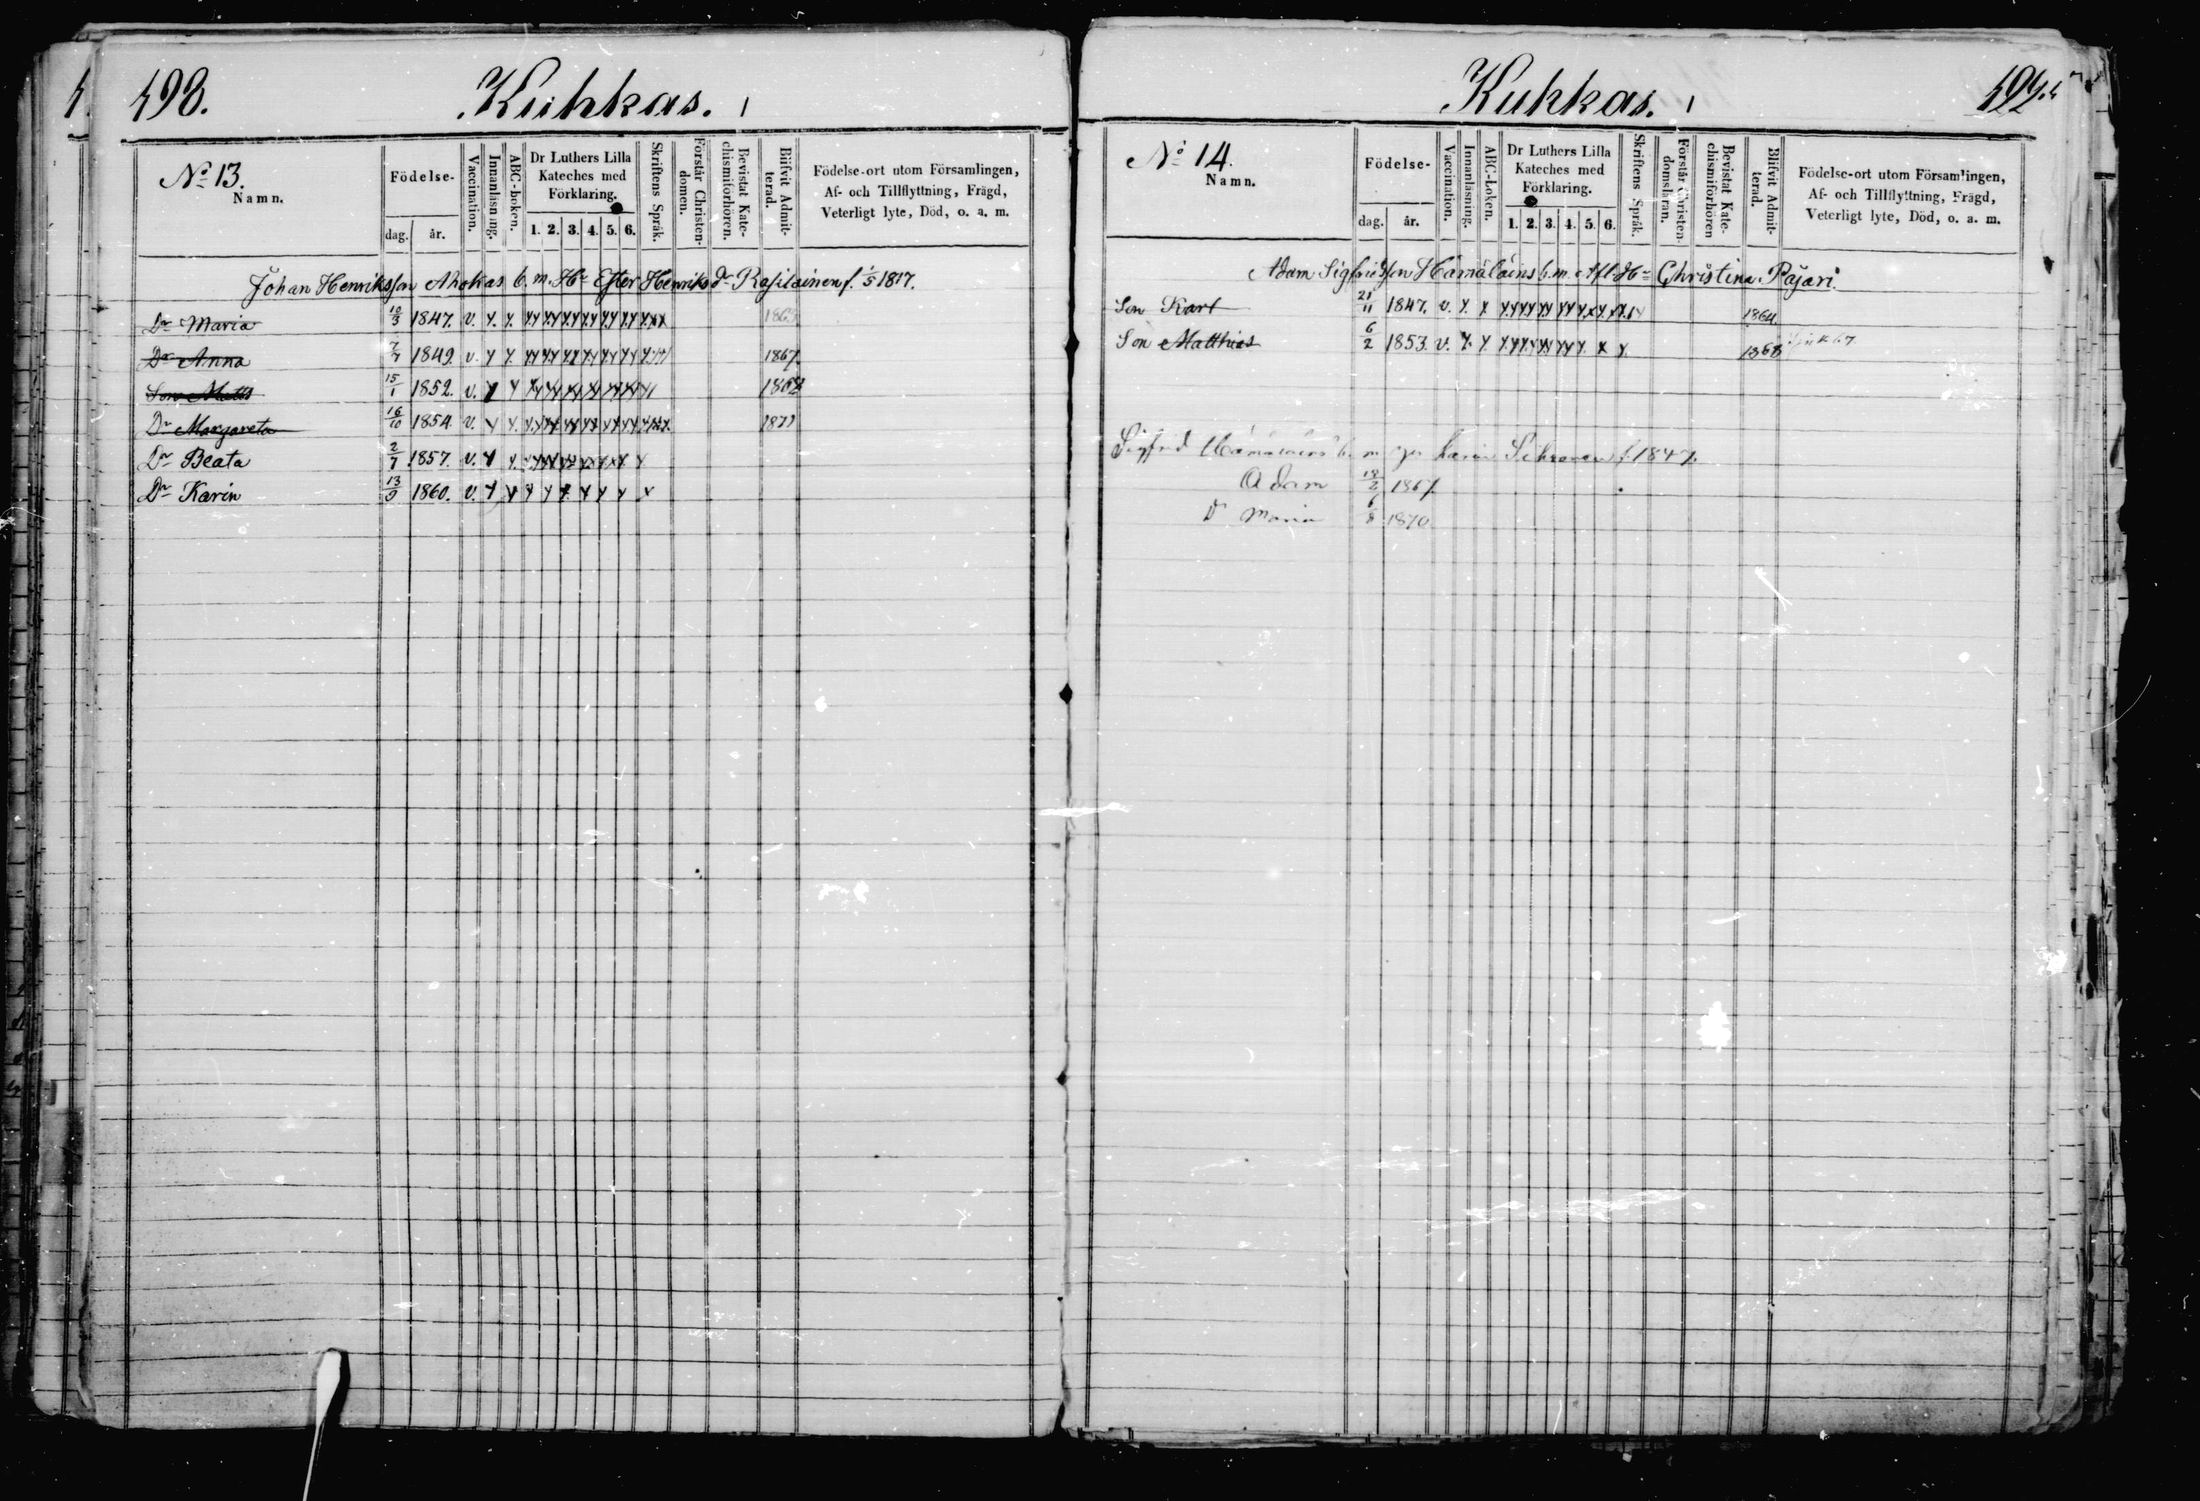 498.
Kuhkas.
No 13.
Namn.
Födelse-
dag.
år.
Vaccination.
Innanläsning.
ABC-boken.
Dr Luthers Lilla
Kateches med
Förklaring.
1. 2. 3. 4. 5. 6.
Skriftens Språk.
Förstår Christen-
domen.
Bevistat Kate-
chismiförhören.
Blifvit Admit-
terad.
Födelse-ort utom Församlingen,
Af- och Tillflyttning, Frägd,
Veterligt lyte, Död, o. a. m.
Johan Henriksson Ahokas b. m. Hu Ester Henriks Dr Rasilainen f. 1/5 1817.
Dr Maria 10/3 1847. v.
Dr Anna 7/7 1849. v. 1867
Son Matts 15/1 1852. v. 1868
Dr Margareta 16/10 1854. v. 1871
Dr Beata 2/7 1857. v.
Dr Karin 13/9 1860. v.
Kuhkas.
No 14.
Namn.
Födelse-
dag.
år.
Vaccination.
Innanläsning.
ABC-boken.
Dr Luthers Lilla
Kateches med
Förklaring.
1. 2. 3. 4. 5. 6.
Skriftens Språk.
Förstår Christen-
domsläran.
Bevistat Kate-
chismiförhören
Blifvit Admit-
terad.
Födelse-ort utom Församlingen,
Af- och Tillflyttning, Frägd,
Veterligt lyte, Död, o. a. m.
Adam Sigfridsson Hämäläins b. m. Afl. Hu Christina Pajari.
Son Karl 21/11 1847. v. 1864.
Son Matthias 6/2 1853. v. 1868
Sigfrid b. m. f. 1847.
Adam 18/2 1867.
Dr Maria 6/8 1870